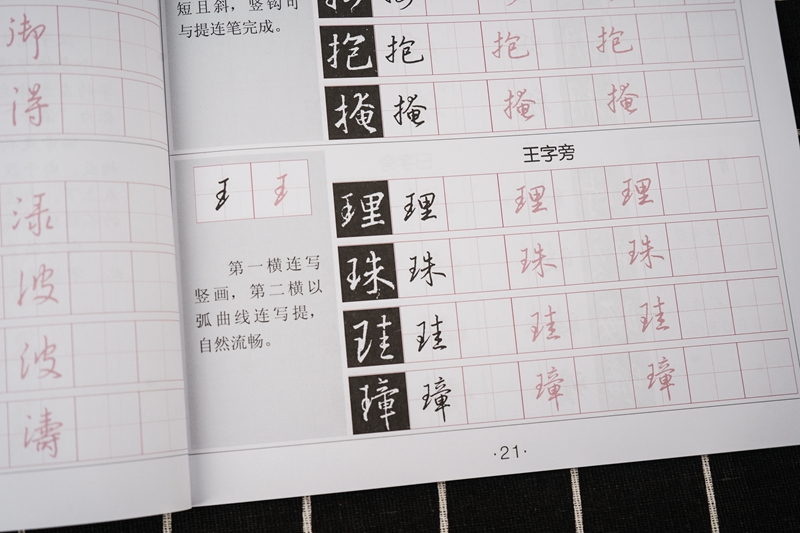 御
得
渌
波
波
濤
短且斜，竖钩可
与提连笔完成。
抱 抱 抱 抱
掩 掩 掩 掩
王字旁
王 王
第一横连写
竖画，第二横以
弧曲线连写提，
自然流畅。
理 理 理 理
珠 珠 珠 珠
珪 珪 珪 珪
璋 璋 璋 璋
·21·